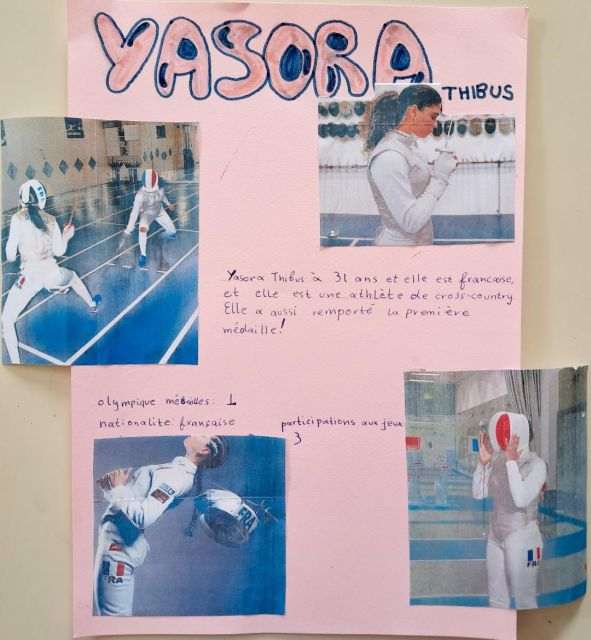 YASORA
THIBUS
Yasora Thibus à 31 ans et elle est française,
et elle est une athlète de cross-country
Elle a aussi remporté la première
médaille!
olympique médailles: 1
nationalité française
participations aux jeux
3
FRA
FRA
FRA